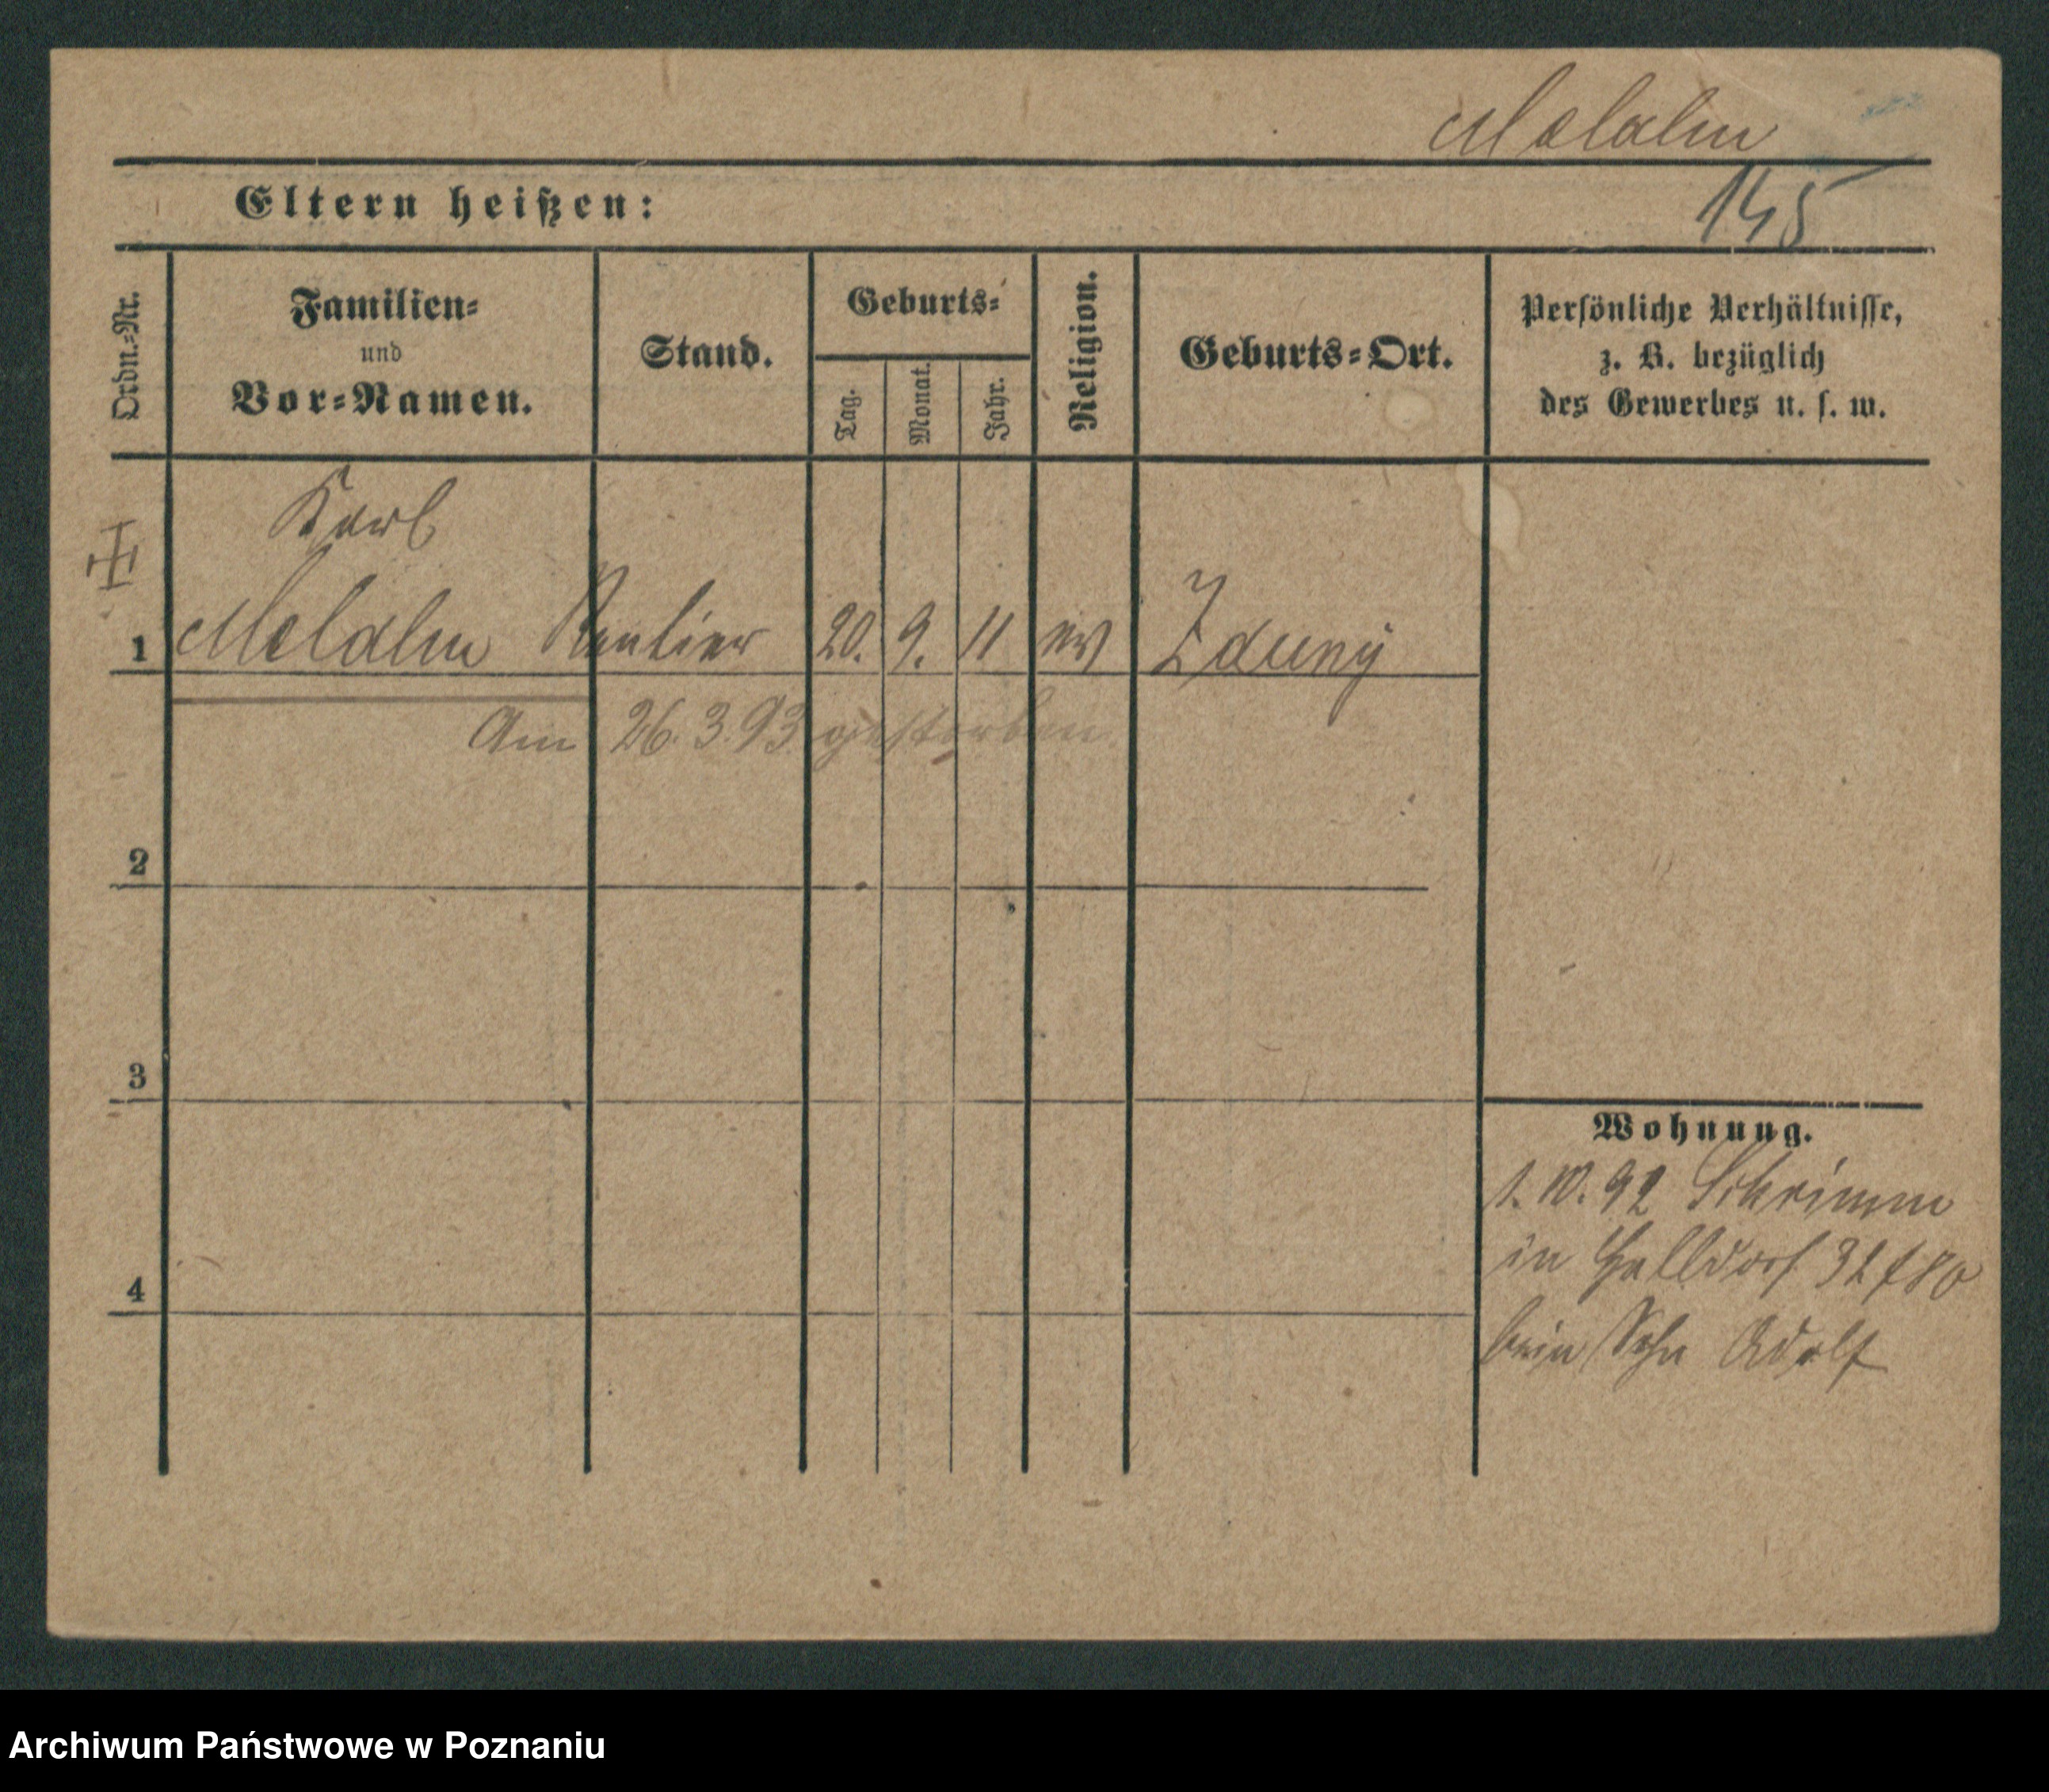 145
Eltern heißen:
Ordn.-Nr.
Familien-
und
Vor-Namen.
Stand.
Geburts-
Tag.
Monat.
Jahr.
Religion.
Geburts-Ort.
Persönliche Verhältnisse,
z. B. bezüglich
des Gewerbes u. s. w.
Karl
1 Rentier 20. 9. 11 ev Zduny
Am 26. 3. 93 gestorben
2
3
4
Wohnung.
1. 10. 92 Schrimm
in
beim Sohn Adolf
Archiwum Państwowe w Poznaniu